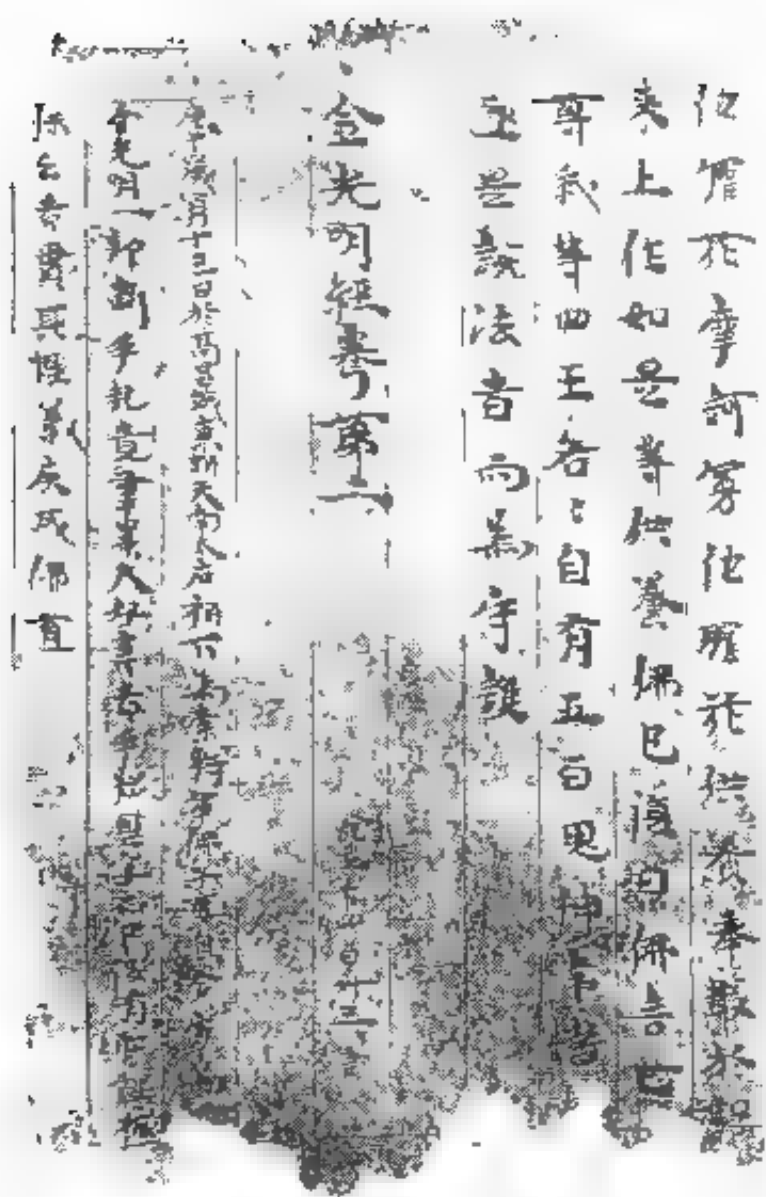 陀羅華摩訶曼陀羅華供養奉散於如
來上作如是等供養佛已復白佛言世
尊我等四王各各自有五百鬼神常當
逐是說法者而為守護
金光明經卷第二
四百卅三言
庚午歲八月十三日於高昌城東胡天南太后祠下為索將軍佛子妻息合家寫此
金光明一部斷手訖竟筆墨大好書者手拙具字而已後有聰叡攬
之者貫其義疾成佛道